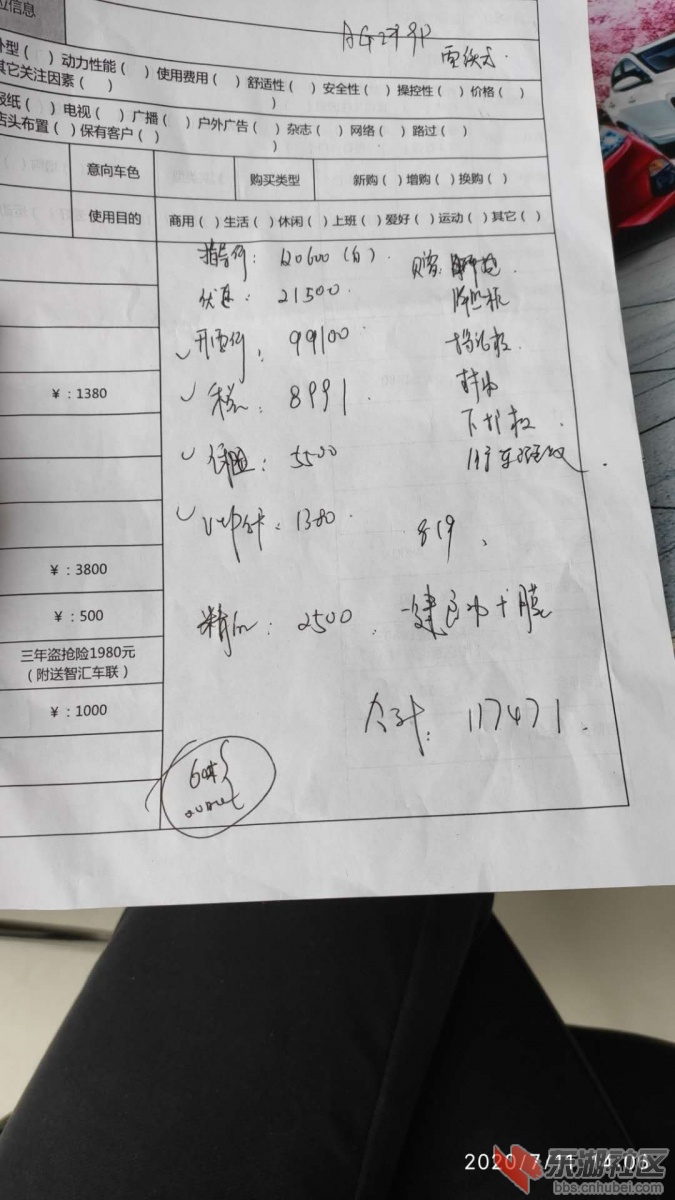 位信息
外型( ) 动力性能( ) 使用费用( ) 舒适性( ) 安全性( ) 操控性( ) 价格( )
其它关注因素( )
报纸( ) 电视( ) 广播( ) 户外广告( ) 杂志( ) 网络( ) 路过( )
店头布置( ) 保有客户( )
意向车色 购买类型 新购( ) 增购( ) 换购( )
使用目的 商用( ) 生活( ) 休闲( ) 上班( ) 爱好( ) 运动( ) 其它( )
指导价: 120600 (白).
优惠: 21500
开票价: 99100
¥:1380
税: 8991
保险: 5500
VIP卡: 1380
819
¥:3800
¥:500
精品: 2500
三年盗抢险1980元
(附送智汇车联)
¥:1000
合计: 117471
2020/7/11 14:06
东湖社区
bbs.cnhubei.com